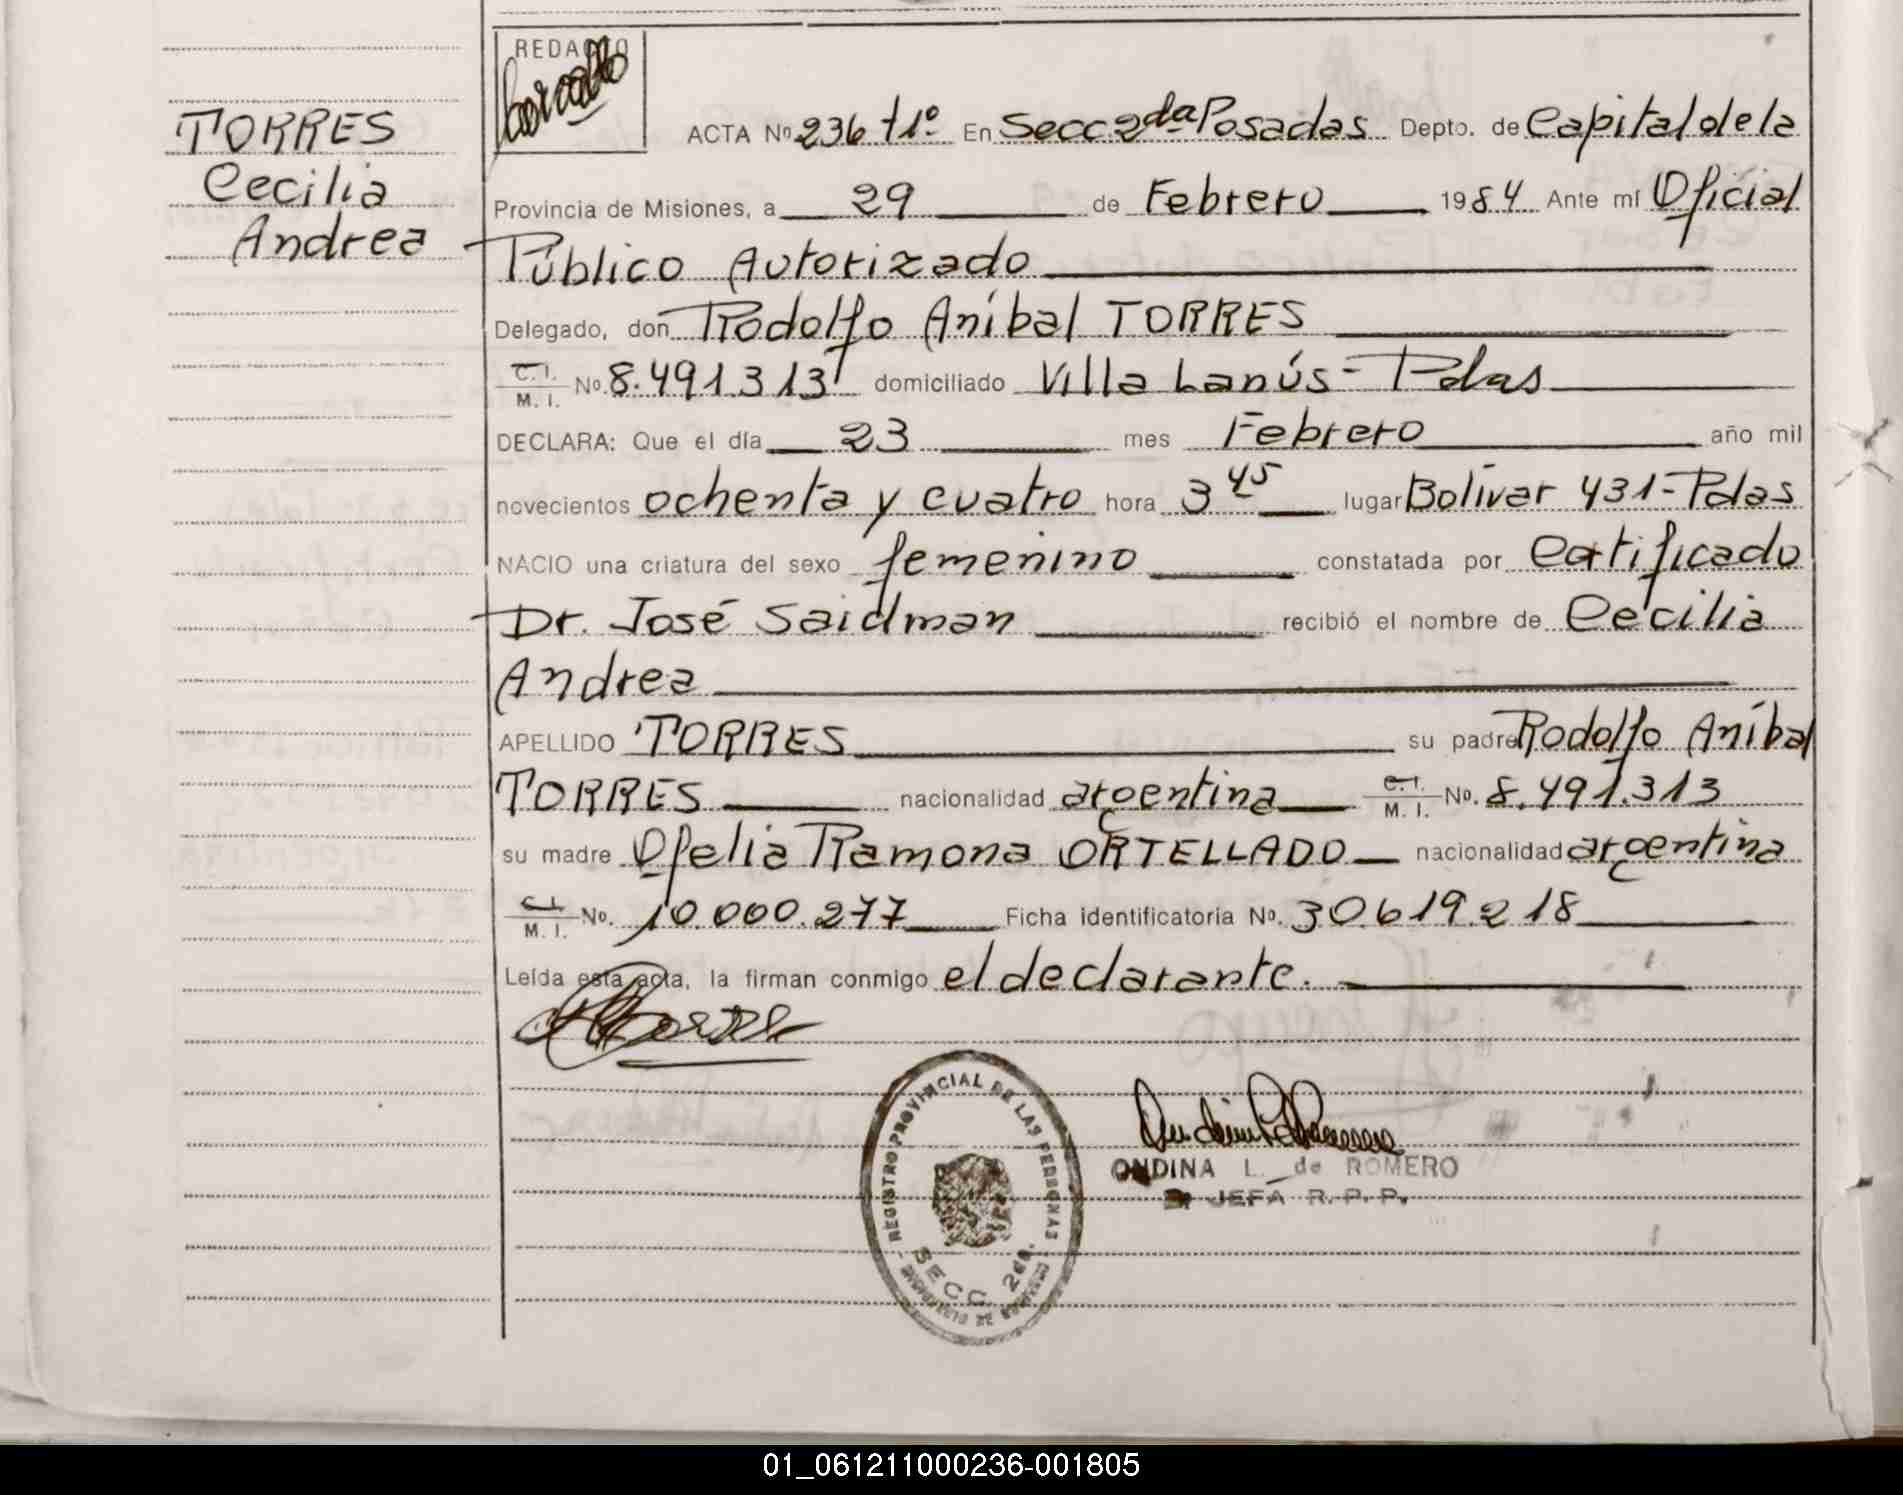 TORRES
Cecilia
Andrea
REDACTO
ACTA Nº 236 t1º En Secc 2da Posadas Depto. de Capital de la
Provincia de Misiones, a 29 de Febrero 1984 Ante mí Oficial
Público Autorizado
Delegado, don Rodolfo Aníbal TORRES
C. I. M. I. No. 8.491.313 domiciliado Villa Lanús - Pdas
DECLARA: Que el día 23 mes Febrero año mil
novecientos ochenta y cuatro hora 3 45 lugar Bolívar 431 - Pdas
NACIO una criatura del sexo femenino constatada por Certificado
Dr. José Saidman recibió el nombre de Cecilia
Andrea
APELLIDO TORRES su padre Rodolfo Aníbal
TORRES nacionalidad argentina C. I. M. I. No. 8.491.313
su madre Ofelia Ramona ORTELLADO nacionalidad argentina
C. I. M. I. No. 10.000.277 Ficha identificatoria No. 30.619.218
Leída esta acta, la firman conmigo el declarante.
REGISTRO PROVINCIAL DE LAS PERSONAS
SECC. 2da.
ONDINA L. de ROMERO
JEFA R. P. P.
01_061211000236-001805